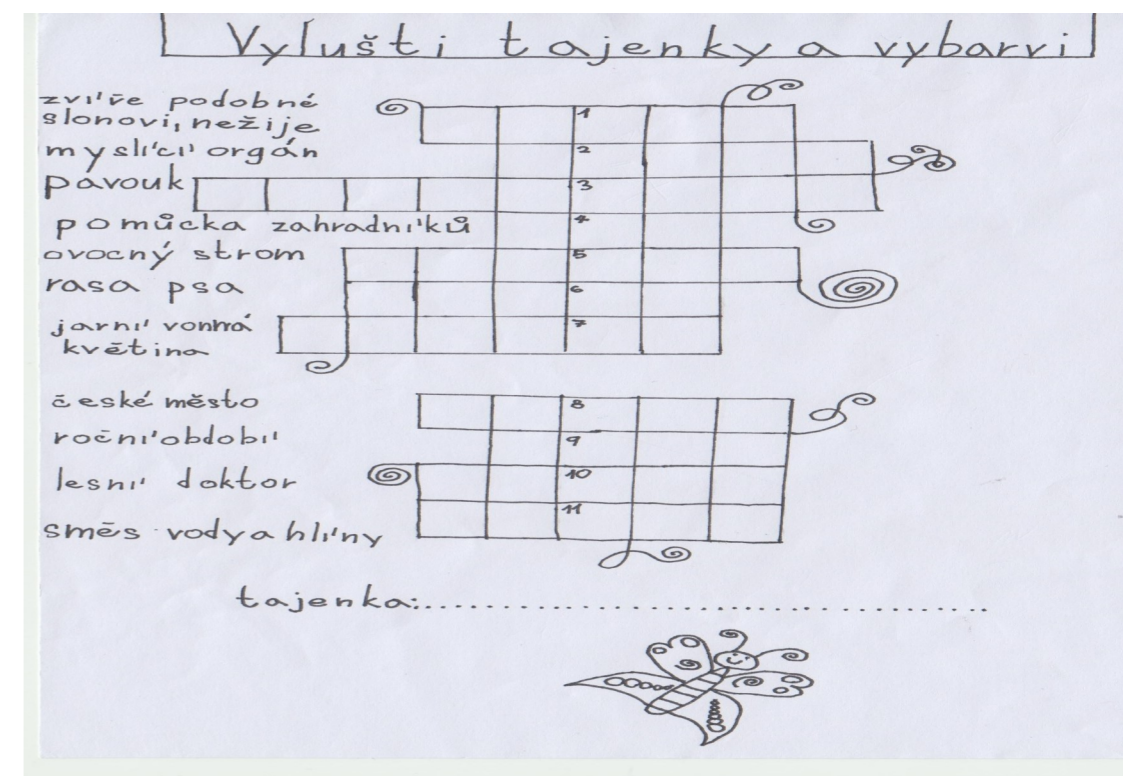 Vylušti tajenky a vybarvi
zvíře podobné
slonovi, nežije
myslící orgán
pavouk
pomůcka zahradníků
ovocný strom
rasa psa
jarní vonná
květina
české město
roční období
lesní doktor
směs vody a hlíny
1
2
3
4
5
6
7
8
9
10
11
tajenka:.......................................